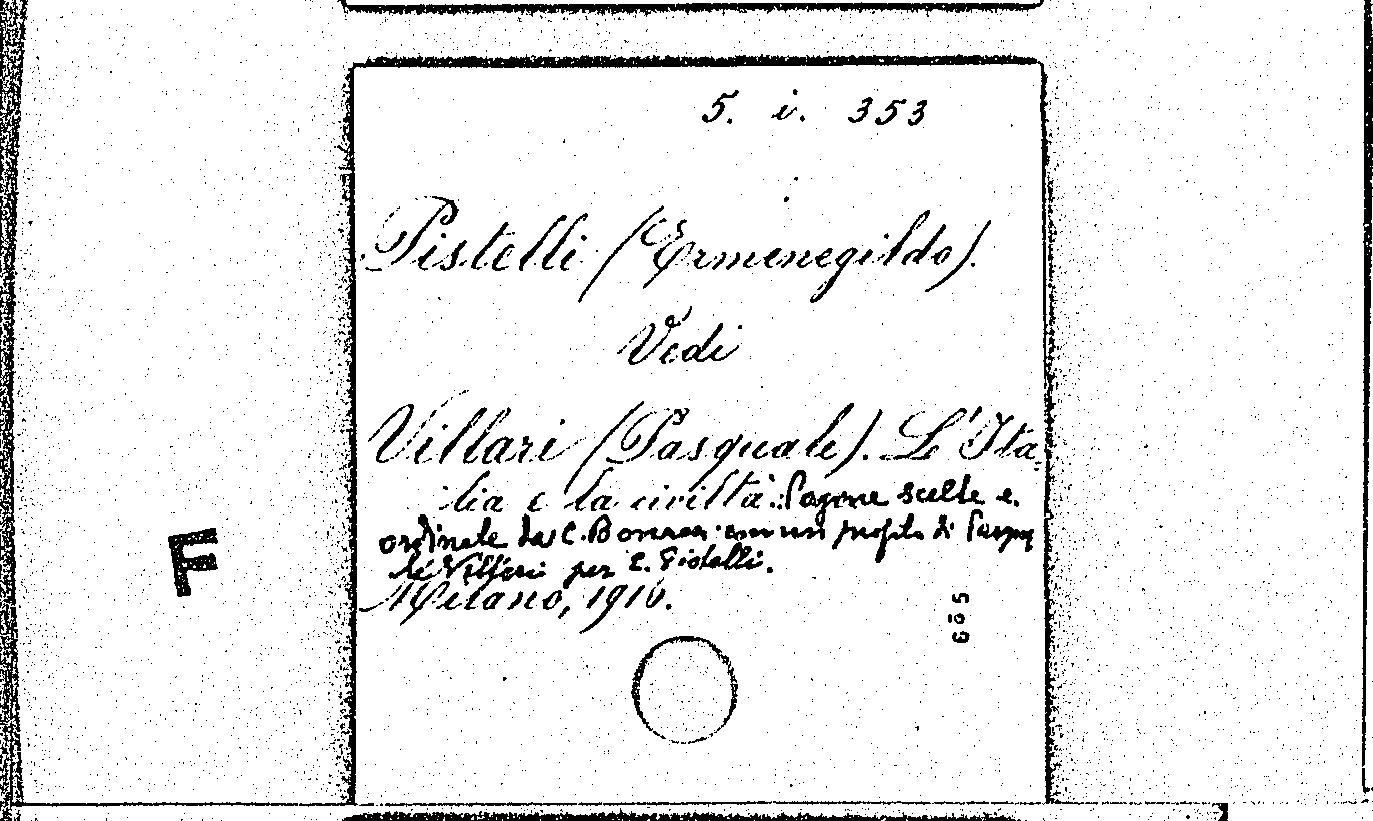 5. i. 353
Pistelli (Ermenegildo).
Vedi
Villari (Pasquale). L'Ita-
lia e la civiltà. Pagine scelte e
ordinate da G. Bonacci con un profilo di Pasqua
le Villari per E. Pistelli.
Milano, 1916.
F